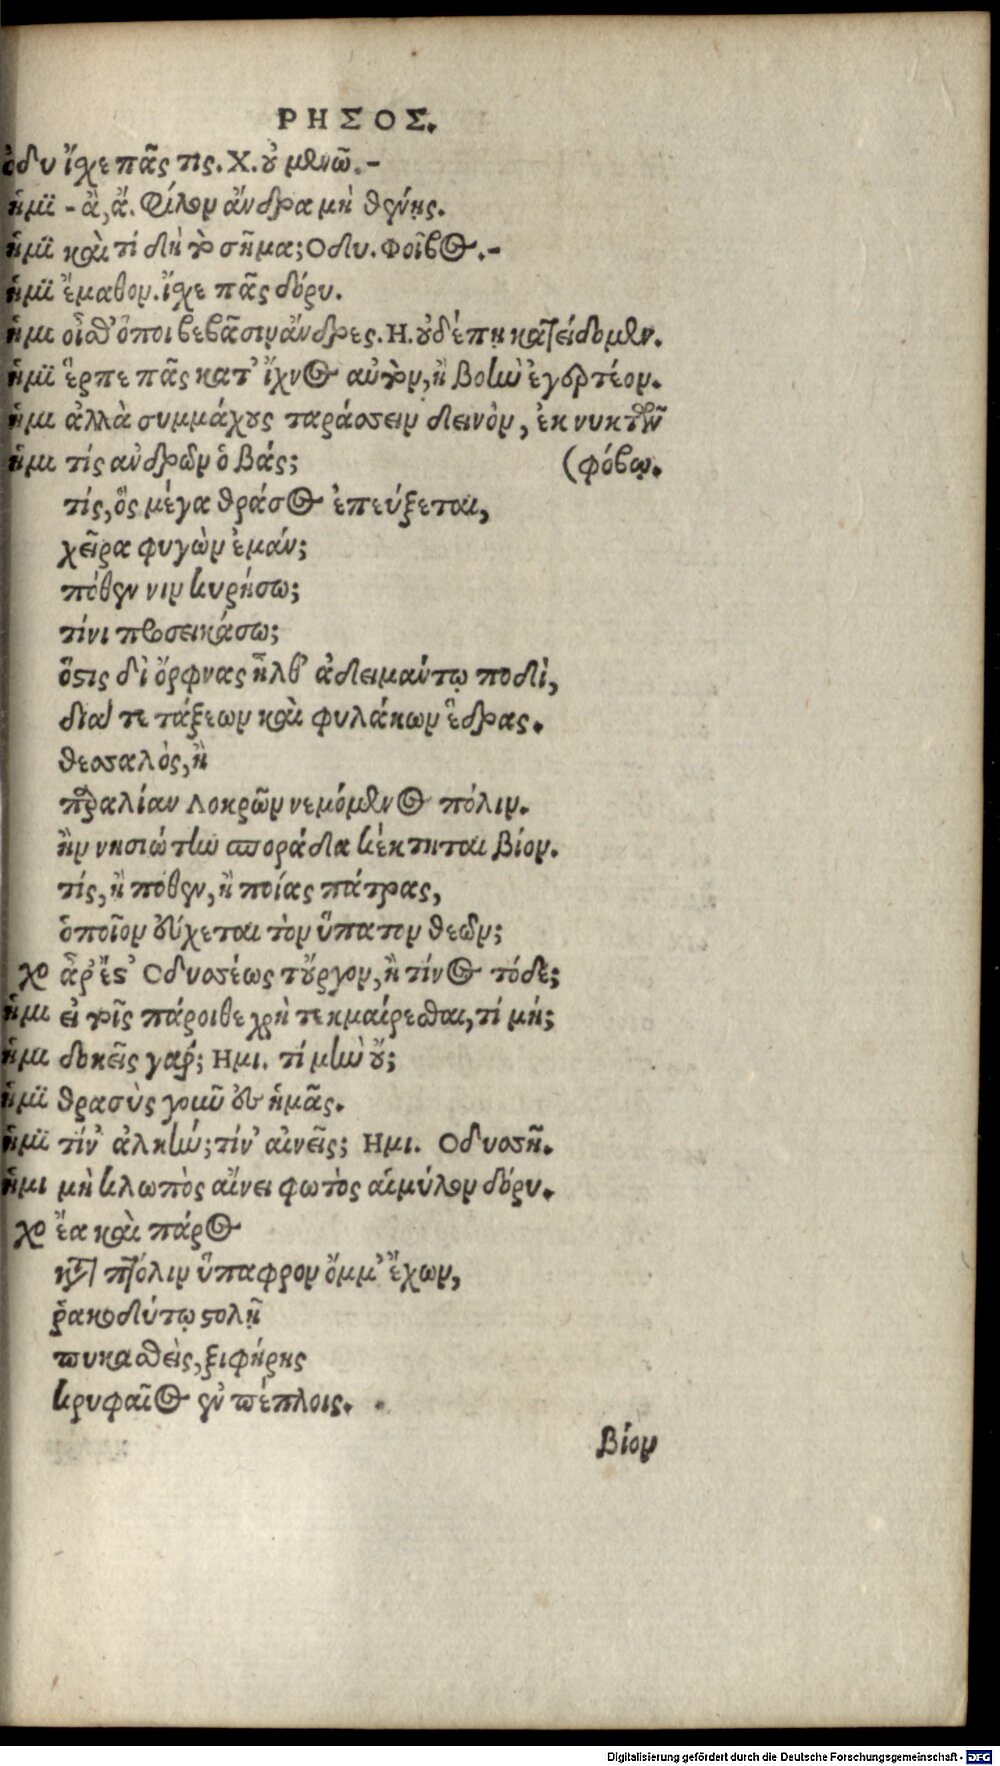 ΡΗΣΟΣ.
ὀδυ ἴχε πᾶς τις. Χ. οὐ μενῶ.-
ἡμϊ - ἆ, ἆ. Φίλον ἄνδρα μὴ θένῃς.
ἡμϊ καὶ τί δὴ τὸ σῆμα; Οδυ. Φοῖβος.-
ἡμϊ ἔμαθον. ἴχε πᾶς δόρυ.
ἡμι οἶσθ' ὅποι βεβᾶσιν ἄνδρες. Η. οὐδέπη κατείδομεν.
ἡμϊ ἕρπε πᾶς κατ' ἴχνος αὐτὸν, ἢ βοὴν ἐγερτέον.
ἡμι ἀλλὰ συμμάχους ταράσσειν δεινὸν, ἐκ νυκτῶν
ἡμι τίς ανδρῶν ὁ βάς; (φόβῳ.
τίς, ὃς μέγα θράσος ἐπεύξεται,
χεῖρα φυγὼν ἐμάν;
πόθεν νιν κυρήσω;
τίνι προσεικάσω;
ὅστις δι ὄρφνας ἦλθ' ἀδειμάντῳ ποδὶ,
διά τε τάξεων καὶ φυλάκων ἕδρας.
θεσσαλὸς, ἢ
παραλίαν Λοκρῶν νεμόμενος πόλιν.
ἢν νησιώτην σποράδα κέκτηται βίον.
τίς, ἢ πόθεν, ἢ ποίας πάτρας,
ὁποῖον εὔχεται τὸν ὕπατον θεῶν;
χο ἆρ' ἔστ' Οδυσσέως τοὔργον, ἢ τίνος τόδε;
ἡμι εἰ τοῖς πάροιθε χρὴ τεκμαίρεσθαι, τί μή;
ἡμι δοκεῖς γάρ; Ημι. τί μὴν οὔ;
ἡμϊ θρασὺς γοιοῦ ἐσ ἡμᾶς.
ἡμϊ τίν' ἀλκήν; τίν' αἰνεῖς; Ημι. Οδυσσῆ.
ἡμι μὴ κλωπὸς αἴνει φωτὸς αἱμύλον δόρυ.
χο ἔα καὶ πάρος
κατὰ πτόλιν ὕπαφρον ὄμμ' ἔχων,
ῥακοδύτῳ στολῇ
πυκασθεὶς, ξιφήρης
κρυφαῖος ἐν πέπλοις.
βίον
Digitalisierung gefördert durch die Deutsche Forschungsgemeinschaft - DFG